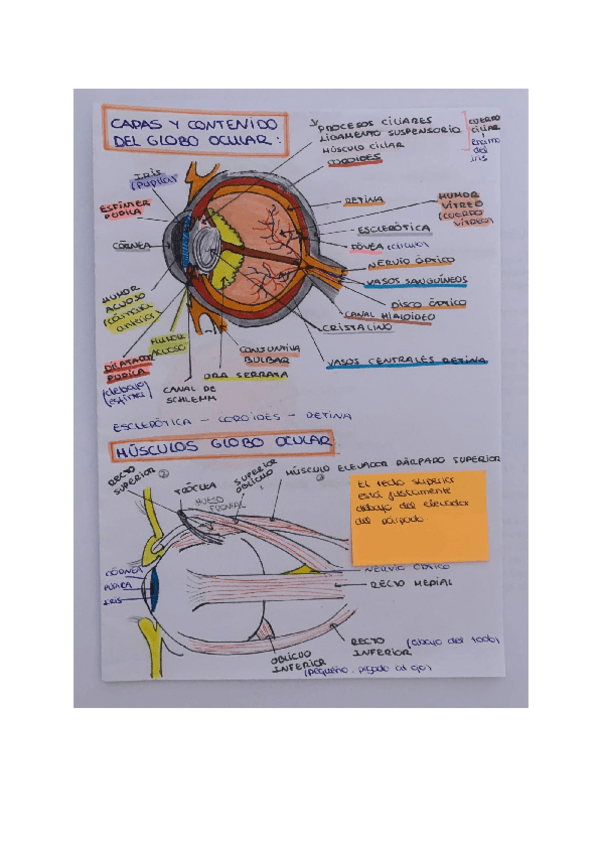 CAPAS Y CONTENIDO
DEL GLOBO OCULAR:
PROCESOS CILIARES
LIGAMENTO SUSPENSORIO
MÚSCULO CILIAR
COROIDES
CUERPO
CILIAR
del
iris
IRIS
(pupila)
ESFÍNTER
PUPILA
CÓRNEA
HUMOR
ACUOSO
(cámara
anterior)
HUMOR
ACUOSO
DILATADOR
PUPILA
(debajo
esfínter)
CANAL DE
SCHLEMM
ORA SERRATA
CONJUNTIVA
BULBAR
RETINA
HUMOR
VÍTREO
(CUERPO
VÍTREO)
ESCLERÓTICA
FÓVEA
NERVIO ÓPTICO
VASOS SANGUÍNEOS
DISCO ÓPTICO
CANAL HIALOIDEO
CRISTALINO
VASOS CENTRALES RETINA
ESCLERÓTICA - COROIDES - RETINA
MÚSCULOS GLOBO OCULAR
RECTO
SUPERIOR ②
TRÓCLEA
HUESO
FRONTAL
SUPERIOR
OBLICUO
MÚSCULO ELEVADOR PÁRPADO SUPERIOR
El recto superior
está justamente
debajo del elevador
del párpado.
CÓRNEA
PUPILA
IRIS
NERVIO ÓPTICO
RECTO MEDIAL
RECTO
INFERIOR
(debajo del todo)
OBLICUO
INFERIOR
(pequeño, pegado al ojo)